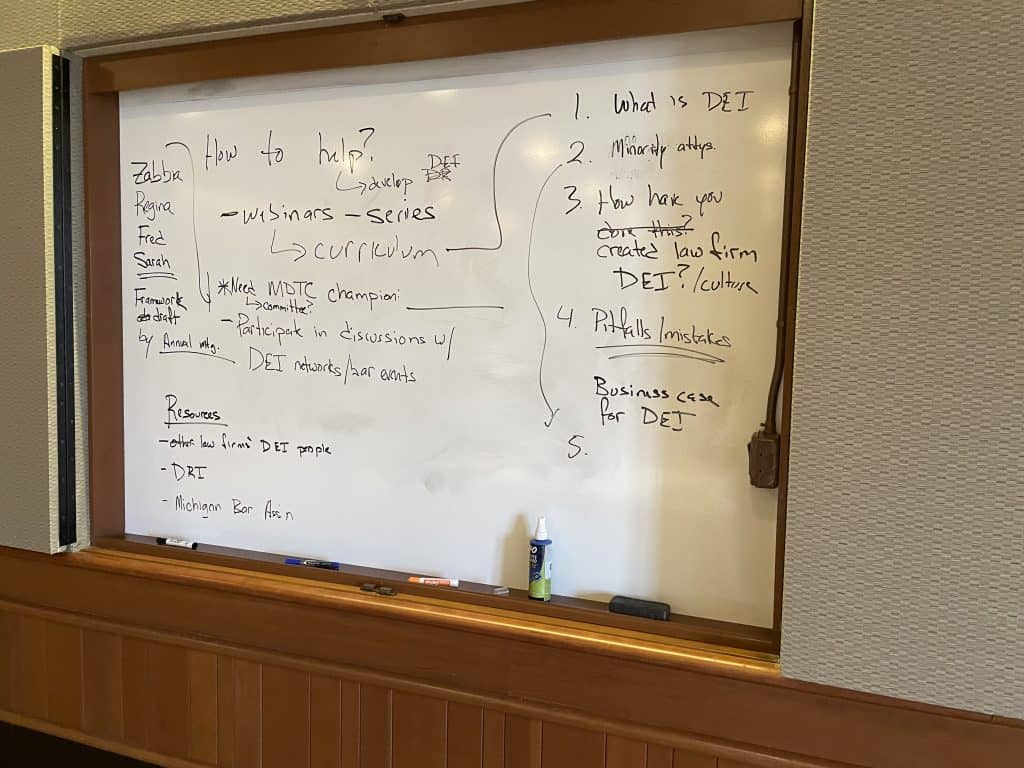 How to help?
↳ develop DEI
Zabba
Regina
Fred
Sarah
Framework
draft
by Annual mtg.
- webinars - series
↳ curriculum
*Need MDTC champion:
↳ committee?
- Participate in discussions w/
DEI networks/bar events
Resources
- other law firms' DEI people
- DRI
- Michigan Bar Ass'n
1. What is DEI
2. Minority attys.
3. How have you
done this?
created law firm
DEI?/culture
4. Pitfalls/mistakes
Business case
for DEI
5.